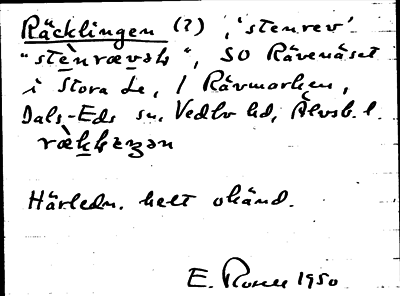 Räcklingen (?), 'stenrev'
"stènrævək", SO Rävenäset
i Stora Le, i Rävmarken,
Dals-Eds sn. Vedbo hd, Älvsb. l.
Härledn. helt okänd.
E. 1950